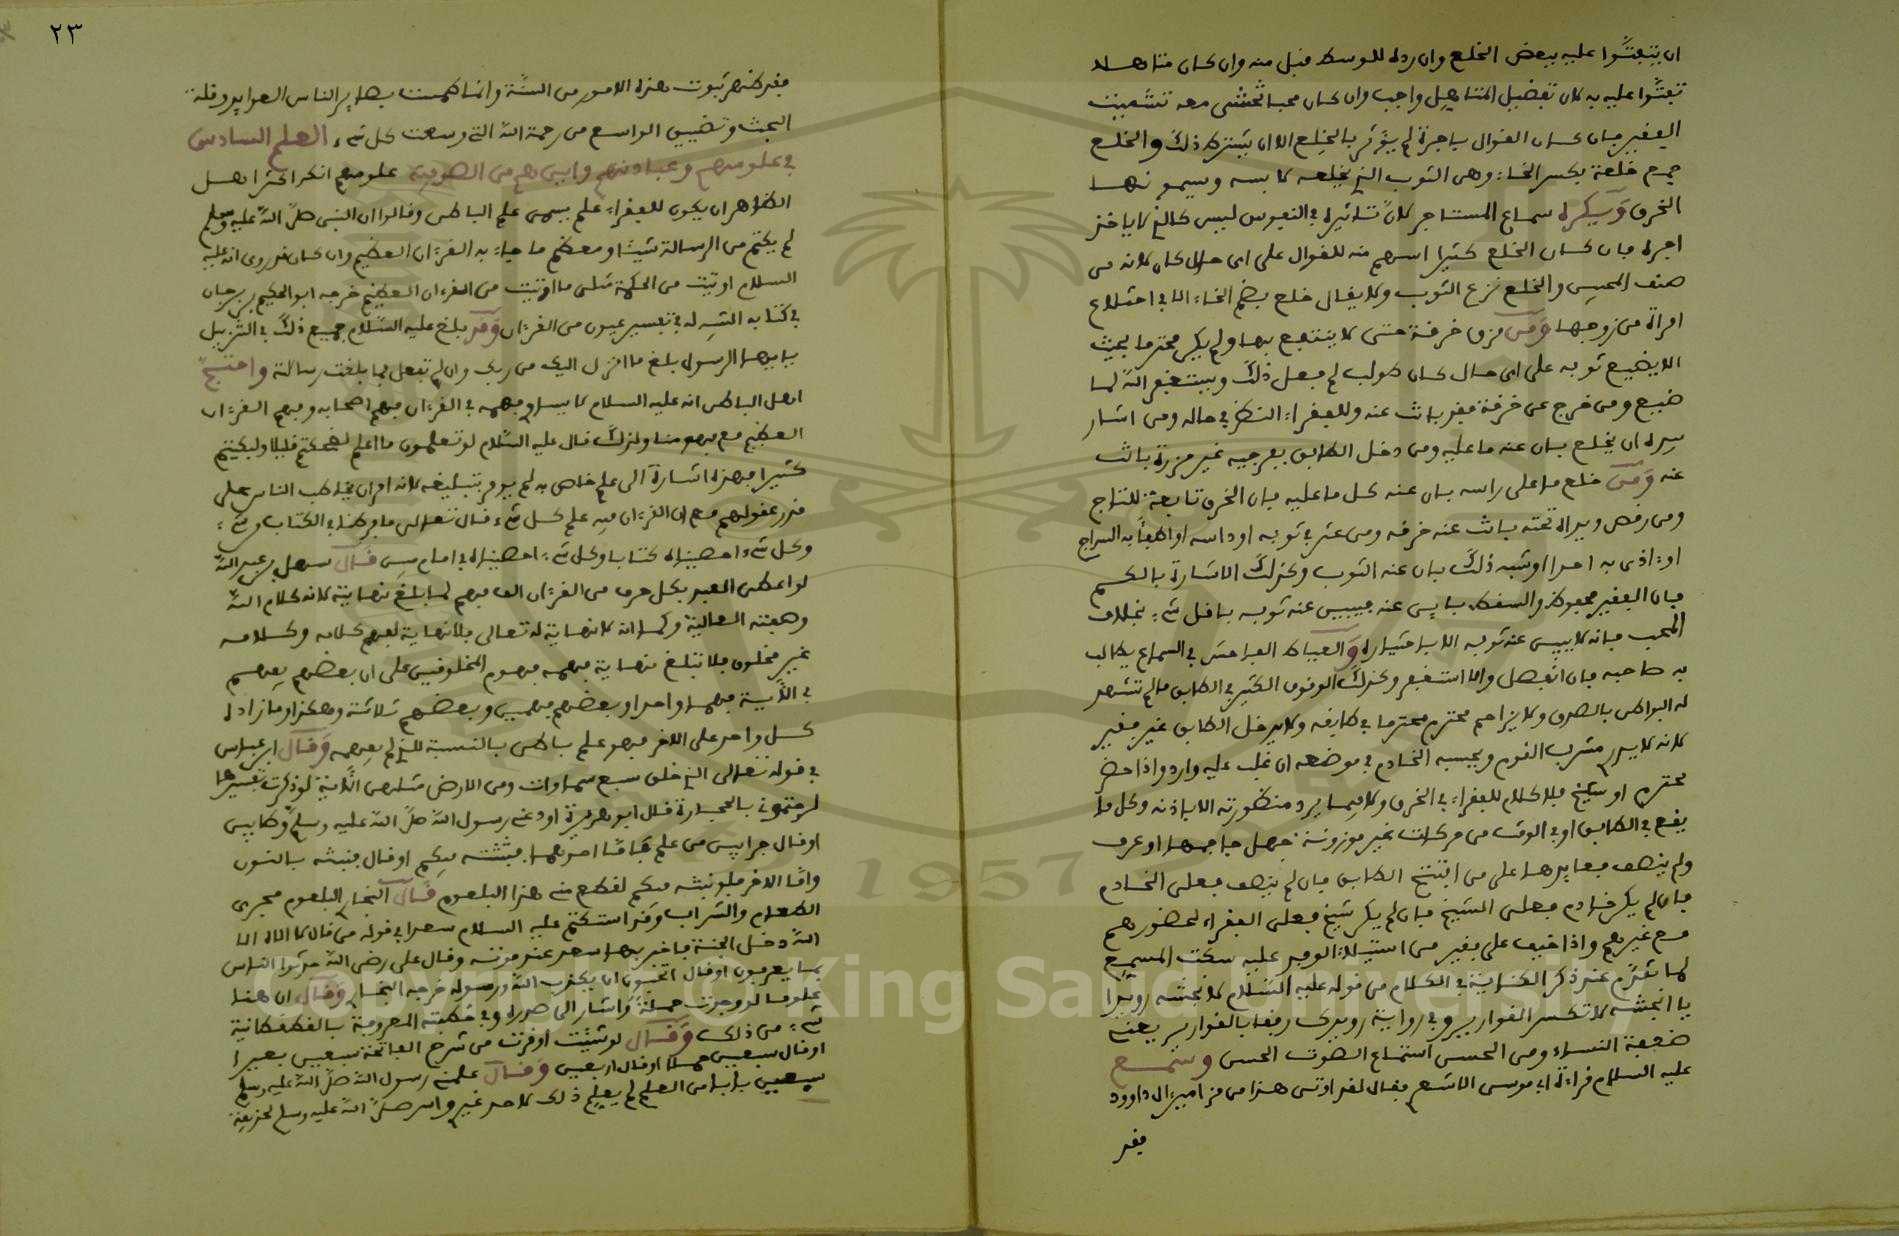 ان يتبعثوا عليه ببعض الخلع وان رده للوسط قبل منه وان كان متاهلا
تبعثوا عليه به لان تفضيل المتاهل واجب وان كان محبا تمشى معه تشبيت
الفقير فان كان القوال باجرة لم يوثر بالخلع الا ان يشترط ذلك والخلع
جمع خلعة بكسر الخاء وهى الثوب الذي يخلعه لابسه ويسمونها
الخرق ويكره سماع المستاجر لان تاثيره في النفوس ليس كالذي لا ياخذ
اجرة فان كان الخلع كثيرا اسهم منه للقوال على اى حال كان لانه من
صنف المحبين والخلع نزع الثوب ولا يقال خلع بضم الخاء الا في اختلاع
امراة من زوجها ومن مزق خرقة حتى لا ينتفع بها ولم يكن محترما بحيث
لا يضيع ثوبه على اى حال كان طولب لم فعل ذلك ويستغفر الله لما
ضيع ومن خرج عن خرقة فقد باث عنه وللفقراء النظر في حاله ومن اشار
بيده ان يخلع بان عنه ما عليه ومن دخل الطابق بفرجيه غير مزررة باثت
عنه ومن خلع ما على راسه بان عنه كل ما عليه فان الخرق تابعة للتاج
ومن رقص ويداه تحته باث عنه خرقه ومن عثر في ثوبه او داسه او اطفا به السراج
او اذى به احدا او شبه ذلك بان عنه الثوب وكذلك الاشارة بالكم
فان الفقير محفوظ والسفط بايس عنه فيبين عنه ثوبه باقل شيء بخلاف
المحب فانه لا يبين عنه ثوبه الا باختياره والعياط الفاحش في السماع يطالب
به صاحبه فان انفصل والا استغفر وكذلك الوقوف الكثير في الطابق ما لم تشهد
له البواطن بالصدق ولا يزاحم محترم محترما في طابقه ولا يدخل الطابق غير فقير
لانه لا يدري مشرب القوم ويجيبه الخادم في موضعه ان غلب عليه وارد واذا حضر
محترم او شيخ فلا كلام للفقراء في الخرق ولا فيما يرد منظورته الا باذنه وكل ما
يقع في الطابق او في الوقت من حركات غير موزونة جهل صاحبها او عرف
ولم ينصف فعايدها على من افتتح الطابق فان لم ينصف فعلى الخادم
فان لم يكن خادم فعلى الشيخ فان لم يكن شيخ فعلى الفقراء لحضورهم
مع غيرهم واذا خيف على فقير من استيلاء الوجد عليه سكت المسمع
لما تقدم عند ذكر الكناية في الكلام من قوله عليه السلام لانجشه رويدا
يا انجشه لا تكسر القوارير وفي رواية رويدك رفقا بالقوارير يعنى
ضعفة النساء ومن الحسن استماع الصوت الحسن وسمع
عليه السلام قراءة ابى موسى الاشعرى فقال لقد اوتى هذا من مزامير ال داوود
فقد
٢٣
فقد ظهر ثبوت هذه الامور من السنة وانما طمست بصاير الناس العوايد وقلة
البحث وتضييق الواسع من رحمة الله التى وسعت كل شيء العلم السادس
في علومهم وعبادتهم واين هم من الصوفية علومهم انكر اكثر اهل
الظاهر ان يكون للفقراء علم يسمى علم الباطن وقالوا ان النبى صلى الله عليه وسلم
لم يكتم من الرسالة شيئا ومعظم ما جاء به القرءان العظيم وان كان قد روى انه عليه
السلام اوتيت من الحكمة مثلى ما اوتيت من القرءان العظيم خرجه ابو الحكيم بن برجان
في كتابه التنبيه له في تفسير عيون من القرءان وقد بلغ عليه السلام جميع ذلك في التنزيل
يايها الرسول بلغ ما انزل اليك من ربك وان لم تفعل فما بلغت رسالته واحتج
اهل الباطن انه عليه السلام لا يساو فهمه في القرءان فهم اصحابه وفهم القرءان
العظيم مع فهومنا ولذلك قال عليه السلام لو تعلمون ما اعلم لضحكتم قليلا ولبكيتم
كثيرا فهذه اشارة الى علم خاص به لم يومر بتبليغه لانه امر ان يخاطب الناس على
قدر عقولهم مع ان القرءان فيه علم كل شيء قال تعالى ما فرطنا في الكتاب من شيء
وكل شيء احصيناه كتابا وكل شيء احصيناه في امام مبين قال سهل بن عبد الله
لو اعطى العبد بكل حرف من القرءان الف فهم لما بلغ نهاية لانه كلام الله
وصفته العالية وكما انه لا نهاية له تعالى فلا نهاية لفهم كلامه وكلامه
غير مخلوق فلا تبلغ نهاية فهمه فهوم المخلوقين على ان بعضهم يفهم
في الآية فهما واحدا وبعضهم فهمين وبعضهم ثلاثة وهكذا وما زاد له
كل واحد على الاخر فهو علم باطن بالنسبة للذي لم يفهمه وقال ابن عباس
في قوله تعالى الذي خلق سبع سماوات ومن الارض مثلهن الآية لو ذكرت تفسيرها
لرجمتموني بالحجارة قال ابو هريرة اودعنى رسول الله صلى الله عليه وسلم وطابين
او قال جرابين من علم فاما احدهما فبثثته فيكم او قال فبثثه بالنون
واما الاخر فلو بثثه فيكم لقطع منى هذا البلعوم قال البخاري البلعوم مجرى
الطعام والشراب وقد استكتم عليه السلام سعدا في قوله من قال لا اله الا
الله دخل الجنة فاخبر بها سعد عند موته وقال على رضى الله عنه حدثوا الناس
بما يعرفون او قال اتحبون ان يكذب الله ورسوله خرجه البخاري وقال ان هنا
علوما لو وجدت حملة واشار الى صدره وفي خطبته المعروفة بالطمطمانية
شيء من ذلك وقال لو شيت اوقرت من شرح الفاتحة سبعين بعيرا
او قال سبعين حملا او قال اربعين وقال علمنى رسول الله صلى الله عليه وسلم
سبعين بابا من العلم لم يعلم ذلك لاحد غيري واسر صلى الله عليه وسلم لحذيفة
Copyright © King Saud University
1957